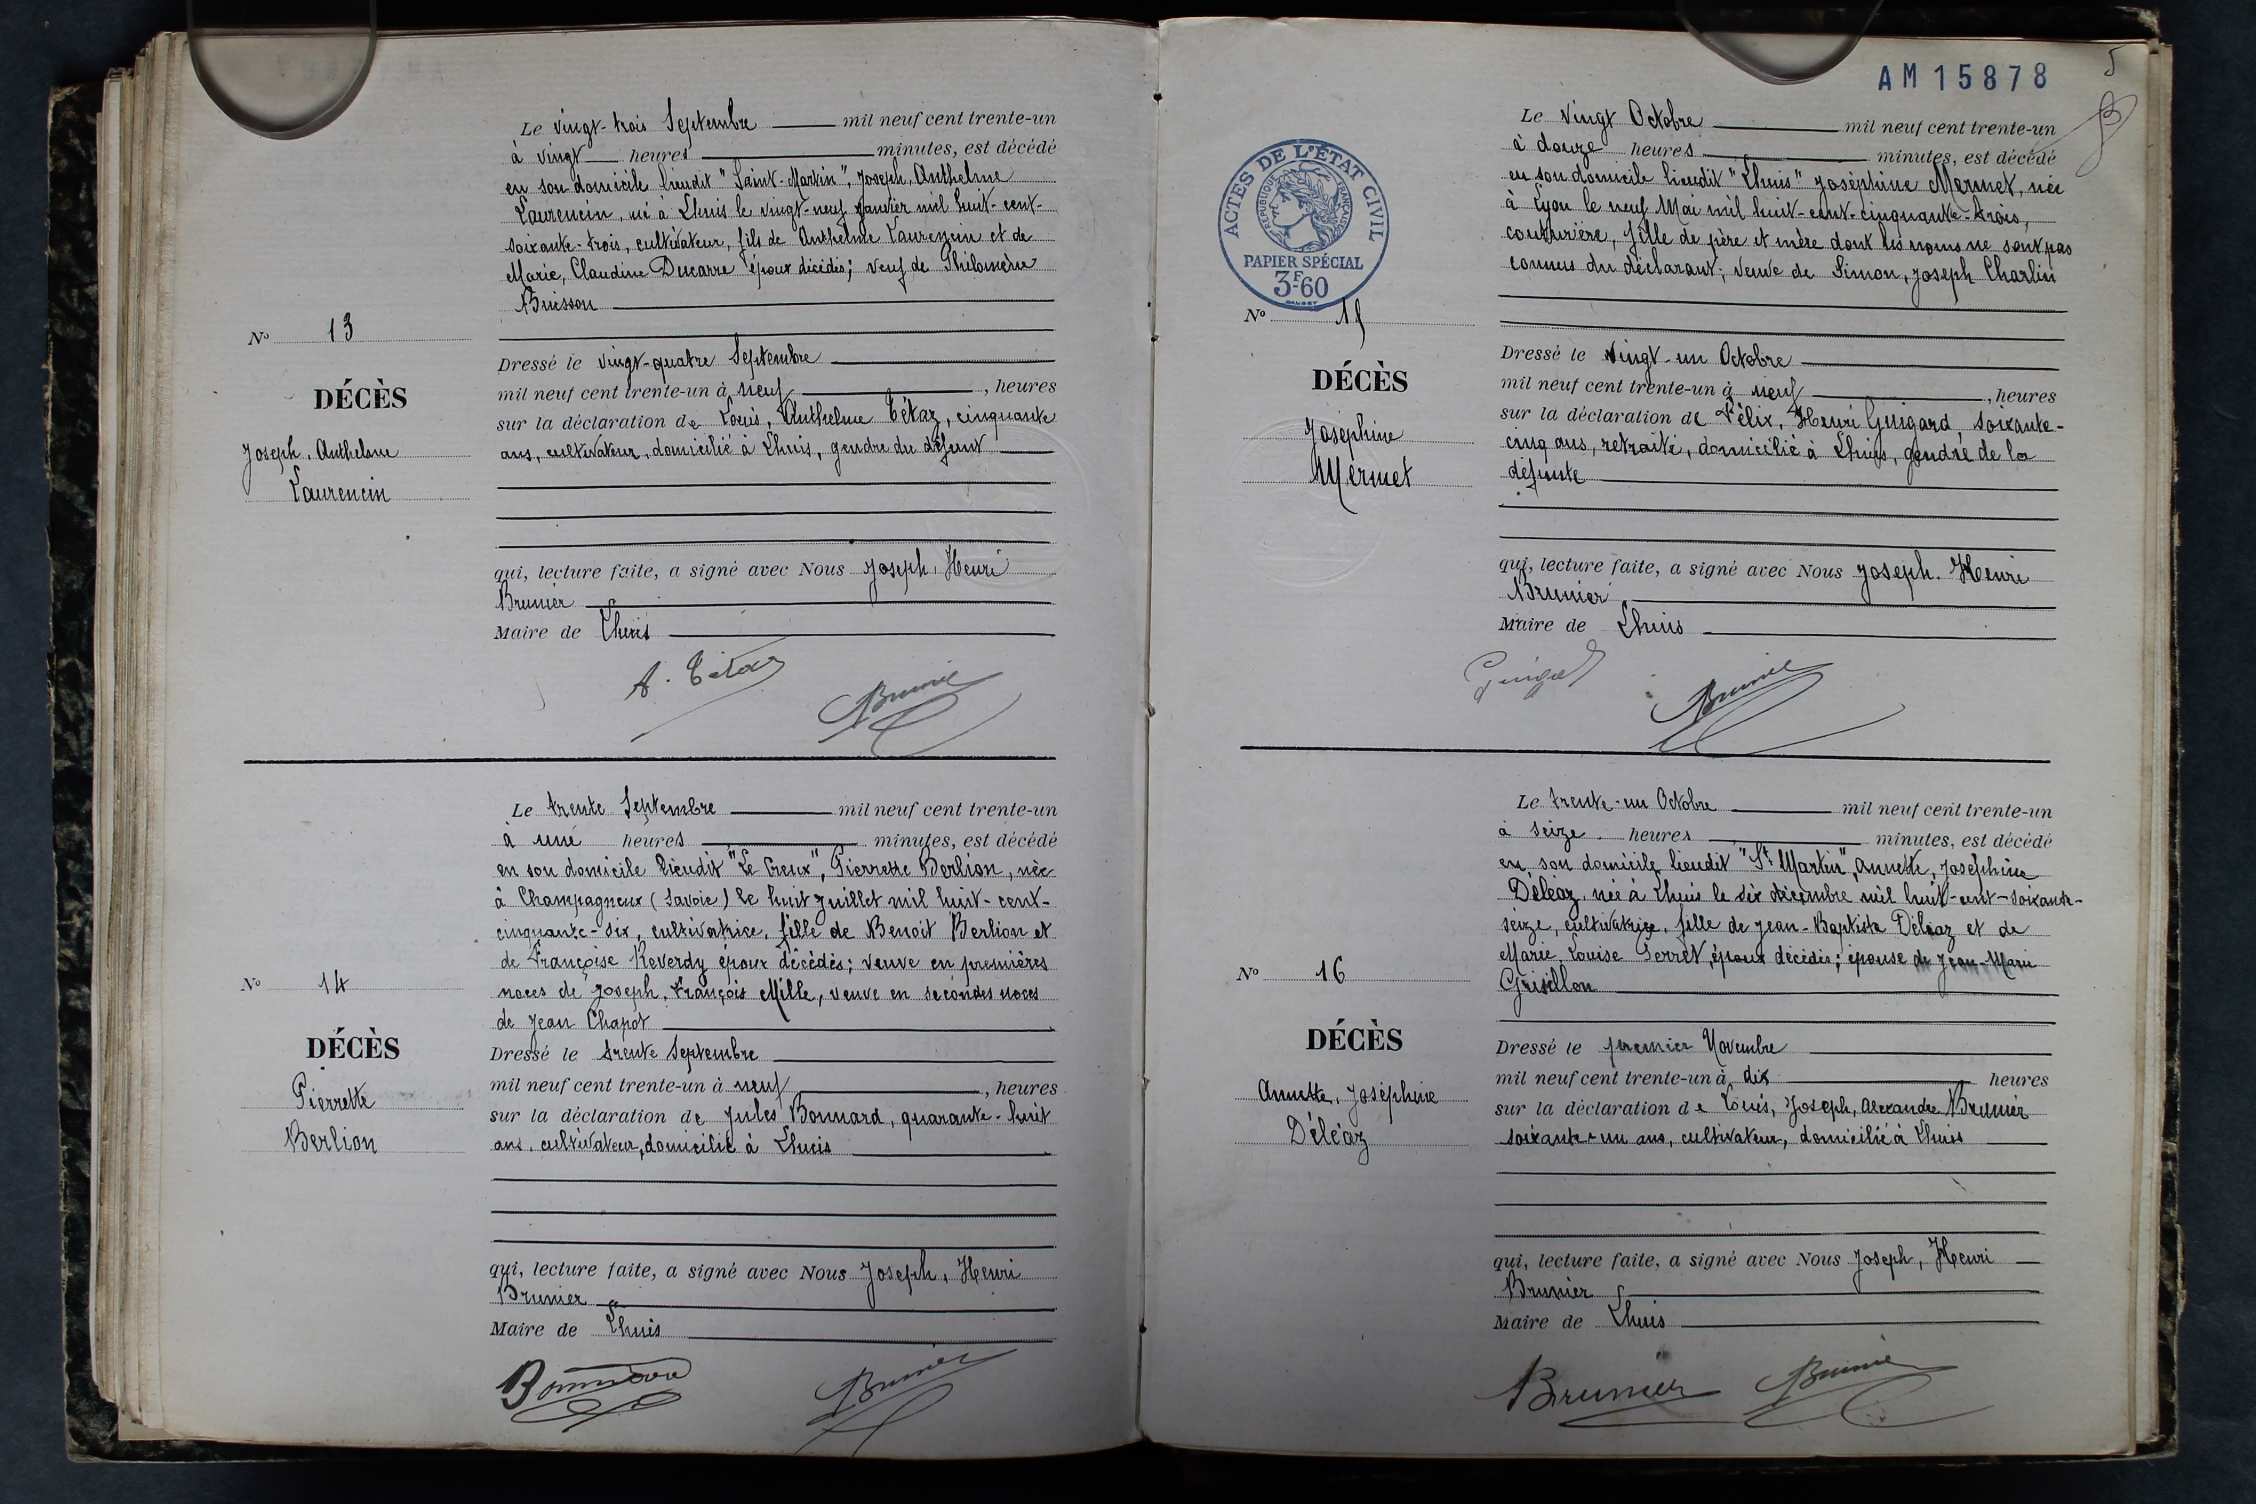 Le vingt-trois Septembre mil neuf cent trente-un
à vingt heures minutes, est décédé
en son domicile lieudit "Saint-Martin", Joseph, Anthelme
Laurencin, né à Lhuis le vingt-neuf Janvier mil huit-cent-
soixante-trois, cultivateur, fils de Anthelme Laurencin et de
Marie, Claudine Ducarre époux décédés; veuf de Philomène
Buisson
No 13
DÉCÈS
Joseph, Anthelme
Laurencin
Dressé le vingt-quatre Septembre
mil neuf cent trente-un à neuf, heures
sur la déclaration de Louis, Anthelme Tétaz, cinquante
ans, cultivateur, domicilié à Lhuis, gendre du défunt
qui, lecture faite, a signé avec Nous Joseph, Henri
Brunier
Maire de Lhuis
A. Tétaz
Brunier
Le trente Septembre mil neuf cent trente-un
à une heures minutes, est décédé
en son domicile lieudit "Le Creux", Pierrette Berlion, née
à Champagneux (Savoie) le huit Juillet mil huit-cent-
cinquante-six, cultivatrice, fille de Benoit Berlion et
de Françoise Reverdy époux décédés; veuve en premières
noces de Joseph, François Mille, veuve en secondes noces
de Jean Chapot
No 14
DÉCÈS
Pierrette
Berlion
Dressé le trente Septembre
mil neuf cent trente-un à neuf, heures
sur la déclaration de Jules Bonnard, quarante-huit
ans, cultivateur, domicilié à Lhuis
qui, lecture faite, a signé avec Nous Joseph, Henri
Brunier
Maire de Lhuis
Bonnard
Brunier
AM 15878
5
ACTES DE L'ÉTAT CIVIL
RÉPUBLIQUE FRANÇAISE
PAPIER SPÉCIAL
3F60
Le vingt Octobre mil neuf cent trente-un
à douze heures minutes, est décédé
en son domicile lieudit "Lhuis" Joséphine Mermet, née
à Lyon le neuf Mai mil huit-cent-cinquante-trois,
couturière, fille de père et mère dont les noms ne sont pas
connus du déclarant; veuve de Simon, Joseph Charlin
No 15
DÉCÈS
Joséphine
Mermet
Dressé le vingt-un Octobre
mil neuf cent trente-un à neuf, heures
sur la déclaration de Félix, Henri Guigard, soixante-
cinq ans, retraité, domicilié à Lhuis, gendre de la
défunte
qui, lecture faite, a signé avec Nous Joseph, Henri
Brunier
Maire de Lhuis
Guigard
Brunier
Le trente-un Octobre mil neuf cent trente-un
à seize heures minutes, est décédé
en son domicile lieudit "St Martin", Annette, Joséphine
Déléaz, née à Lhuis le dix décembre mil huit-cent-soixante-
seize, cultivatrice, fille de Jean-Baptiste Déléaz et de
Marie, Louise Perret, époux décédés; épouse de Jean-Marie
Grisillon
No 16
DÉCÈS
Annette, Joséphine
Déléaz
Dressé le premier Novembre
mil neuf cent trente-un à dix heures
sur la déclaration de Louis, Joseph, Alexandre Brunier
soixante-un ans, cultivateur, domicilié à Lhuis
qui, lecture faite, a signé avec Nous Joseph, Henri
Brunier
Maire de Lhuis
Brunier
Brunier